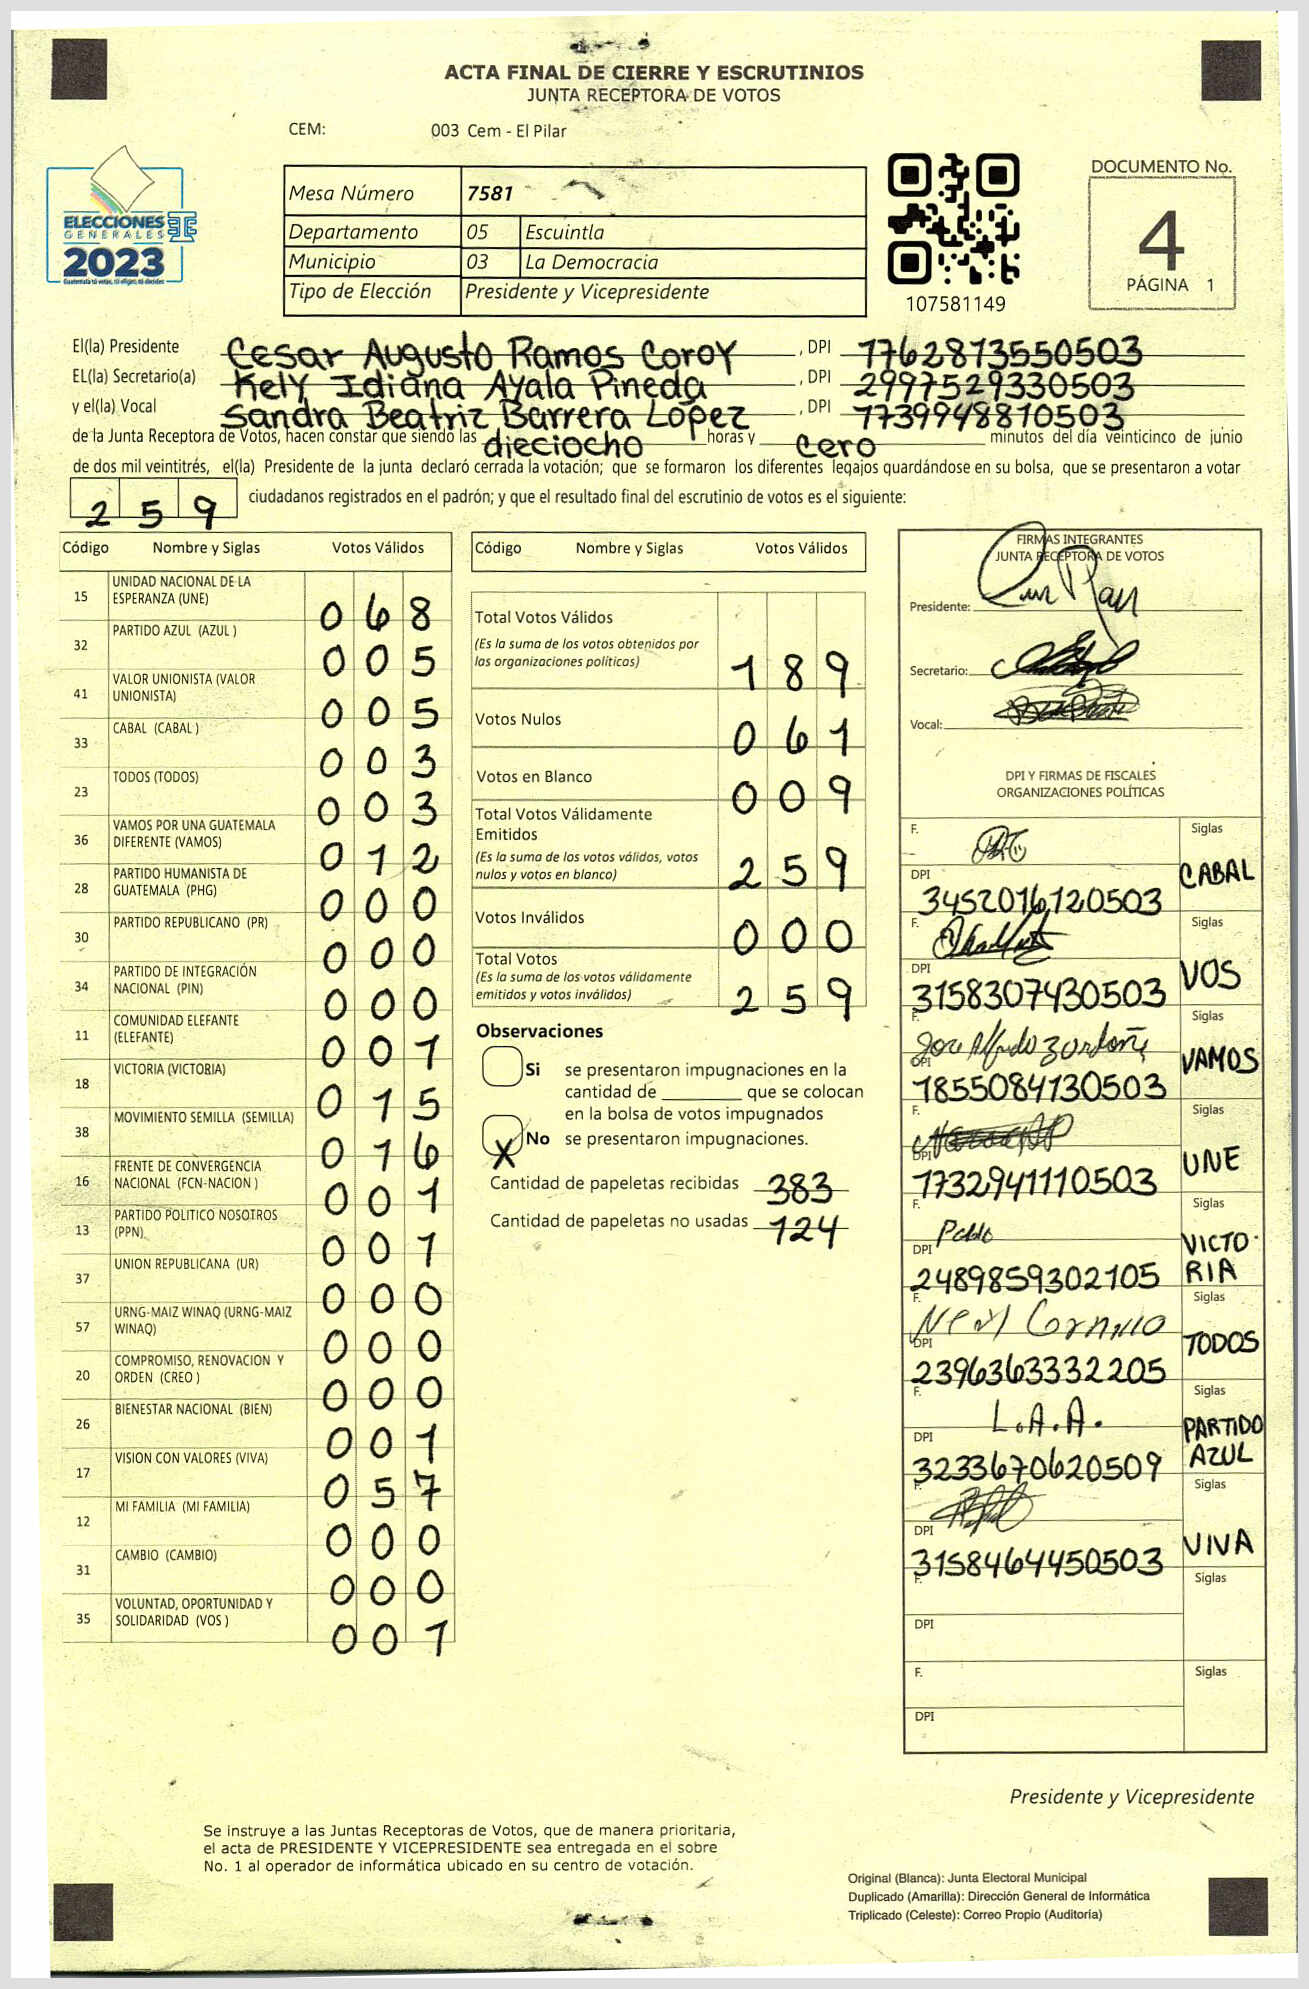 ACTA FINAL DE CIERRE Y ESCRUTINIOS
JUNTA RECEPTORA DE VOTOS
CEM: 003 Cem - El Pilar
ELECCIONES
GENERALES
2023
Guatemala tú votas, tú eliges, tú decides
Mesa Número 7581
Departamento 05 Escuintla
Municipio 03 La Democracia
Tipo de Elección Presidente y Vicepresidente
107581149
DOCUMENTO No.
4
PÁGINA 1
El(la) Presidente Cesar Augusto Ramos Coroy , DPI 1762813550503
EL(la) Secretario(a) Kely Idiana Ayala Pineda , DPI 2997529330503
y el(la) Vocal Sandra Beatriz Barrera López , DPI 1739948810503
de la Junta Receptora de Votos, hacen constar que siendo las dieciocho horas y cero minutos del día veinticinco de junio
de dos mil veintitrés, el(la) Presidente de la junta declaró cerrada la votación; que se formaron los diferentes legajos quardándose en su bolsa, que se presentaron a votar
2 5 9 ciudadanos registrados en el padrón; y que el resultado final del escrutinio de votos es el siguiente:
Código Nombre y Siglas Votos Válidos
15 UNIDAD NACIONAL DE LA
ESPERANZA (UNE) 0 6 8
32 PARTIDO AZUL (AZUL ) 0 0 5
41 VALOR UNIONISTA (VALOR
UNIONISTA) 0 0 5
33 CABAL (CABAL ) 0 0 3
23 TODOS (TODOS) 0 0 3
36 VAMOS POR UNA GUATEMALA
DIFERENTE (VAMOS) 0 1 2
28 PARTIDO HUMANISTA DE
GUATEMALA (PHG) 0 0 0
30 PARTIDO REPUBLICANO (PR) 0 0 0
34 PARTIDO DE INTEGRACIÓN
NACIONAL (PIN) 0 0 0
11 COMUNIDAD ELEFANTE
(ELEFANTE) 0 0 1
18 VICTORIA (VICTORIA) 0 1 5
38 MOVIMIENTO SEMILLA (SEMILLA) 0 1 6
16 FRENTE DE CONVERGENCIA
NACIONAL (FCN-NACION ) 0 0 1
13 PARTIDO POLITICO NOSOTROS
(PPN) 0 0 1
37 UNION REPUBLICANA (UR) 0 0 0
57 URNG-MAIZ WINAQ (URNG-MAIZ
WINAQ) 0 0 0
20 COMPROMISO, RENOVACION Y
ORDEN (CREO ) 0 0 0
26 BIENESTAR NACIONAL (BIEN) 0 0 1
17 VISION CON VALORES (VIVA) 0 5 7
12 MI FAMILIA (MI FAMILIA) 0 0 0
31 CAMBIO (CAMBIO) 0 0 0
35 VOLUNTAD, OPORTUNIDAD Y
SOLIDARIDAD (VOS ) 0 0 1
Código Nombre y Siglas Votos Válidos
Total Votos Válidos
(Es la suma de los votos obtenidos por
las organizaciones políticas) 1 8 9
Votos Nulos 0 6 1
Votos en Blanco 0 0 9
Total Votos Válidamente
Emitidos
(Es la suma de los votos válidos, votos
nulos y votos en blanco) 2 5 9
Votos Inválidos 0 0 0
Total Votos
(Es la suma de los votos válidamente
emitidos y votos inválidos) 2 5 9
Observaciones
Si se presentaron impugnaciones en la
cantidad de ________ que se colocan
en la bolsa de votos impugnados
X No se presentaron impugnaciones.
Cantidad de papeletas recibidas 383
Cantidad de papeletas no usadas 124
FIRMAS INTEGRANTES
JUNTA RECEPTORA DE VOTOS
Presidente:
Secretario:
Vocal:
DPI Y FIRMAS DE FISCALES
ORGANIZACIONES POLÍTICAS
F. Siglas
DPI 3452016120503 CABAL
F. Siglas
DPI 3158307430503 VOS
F. Jose Alfredo Siglas
DPI 1855084130503 VAMOS
F. Siglas
DPI 1732941110503 UNE
F. Pablo Siglas
DPI 2489859302105 VICTO-
RIA
F. Siglas
DPI 2396363332205 TODOS
F. L.A.A. Siglas
DPI 3233670620509 PARTIDO
AZUL
F. Siglas
DPI 3158464450503 VIVA
F. Siglas
DPI
F. Siglas
DPI
Presidente y Vicepresidente
Se instruye a las Juntas Receptoras de Votos, que de manera prioritaria,
el acta de PRESIDENTE Y VICEPRESIDENTE sea entregada en el sobre
No. 1 al operador de informática ubicado en su centro de votación.
Original (Blanca): Junta Electoral Municipal
Duplicado (Amarilla): Dirección General de Informática
Triplicado (Celeste): Correo Propio (Auditoría)